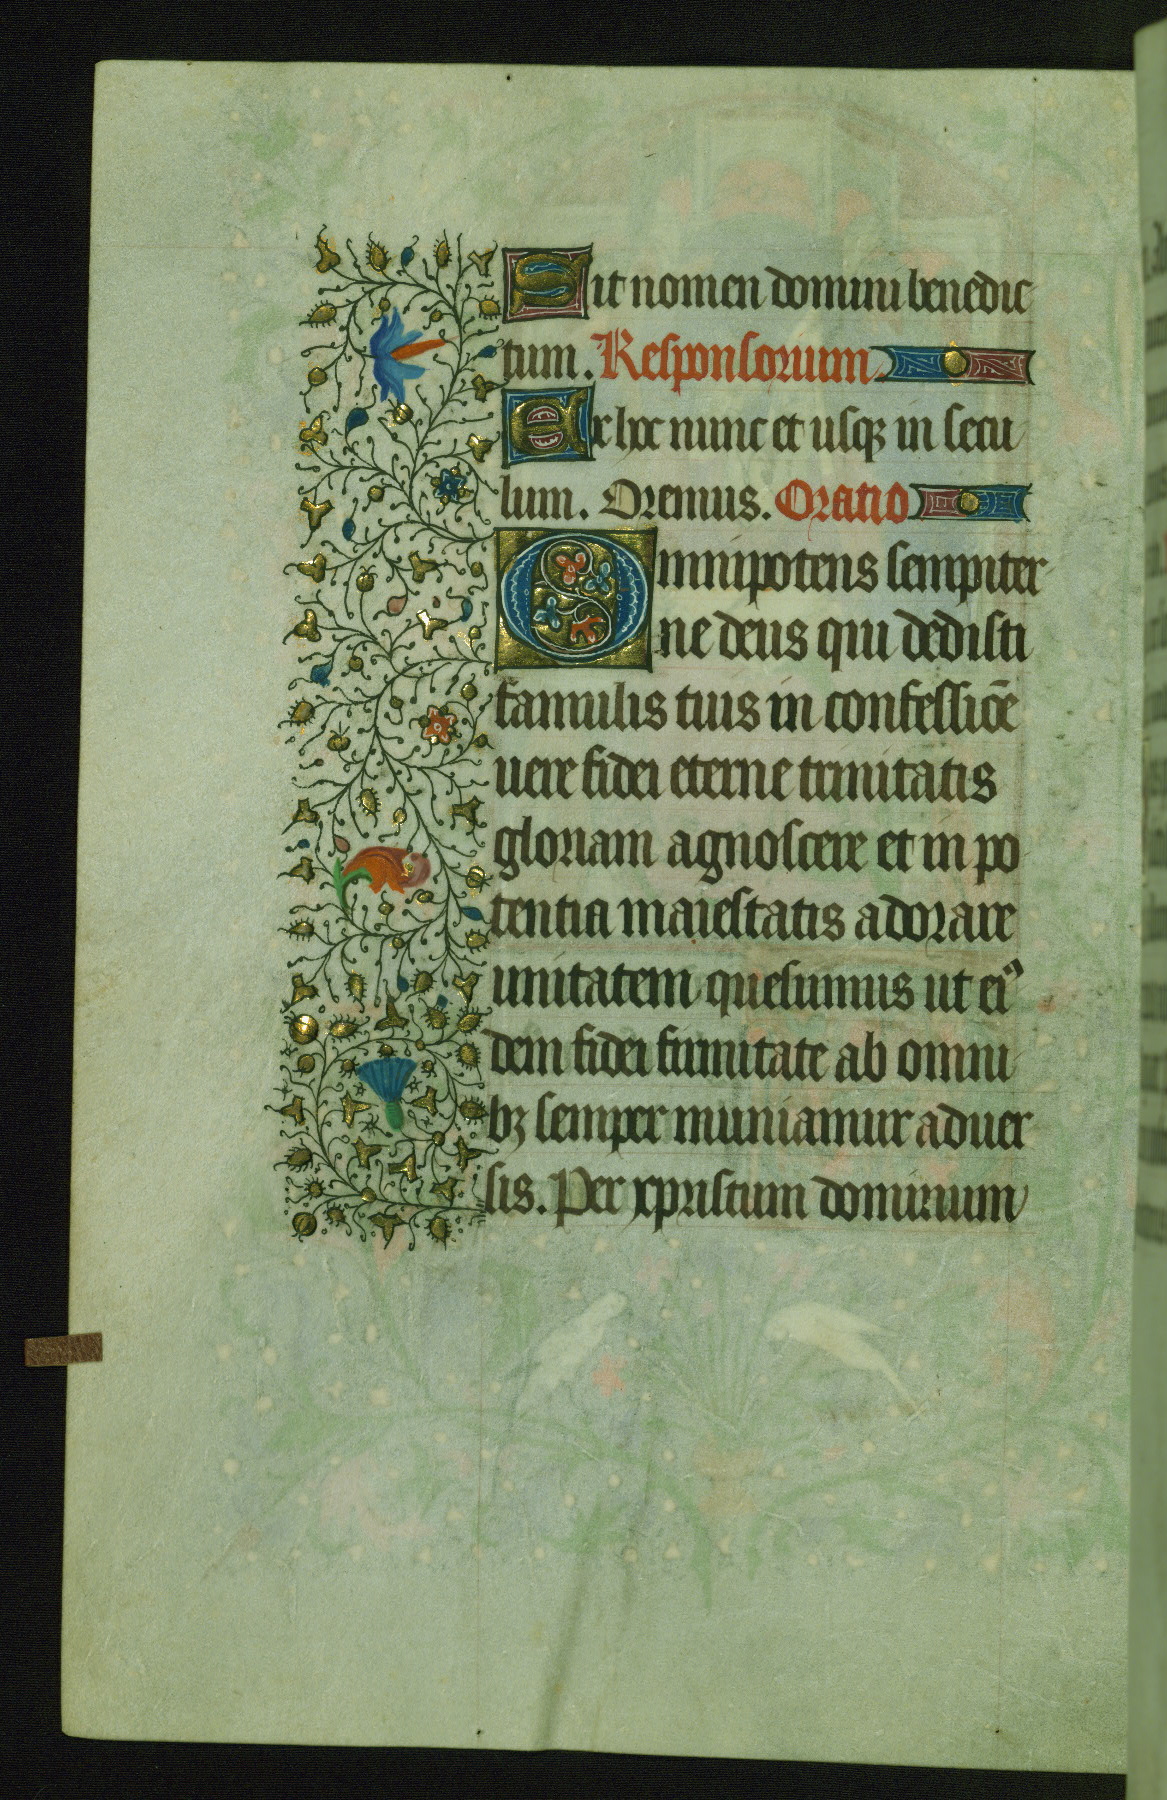 Sit nomen domini benedic
tum. Responsorium.
Ex hoc nunc et usqꝫ in secu
lum. Oremus. Oratio
Omnipotens sempiter
ne deus qui dedisti
famulis tuis in confessiōe
uere fidei eterne trinitatis
gloriam agnoscere et in po
tentia maiestatis adorare
unitatem quesumus ut eiꝰ
dem fidei firmitate ab omni
bꝫ semper muniamur aduer
sis. Per xpristum dominum